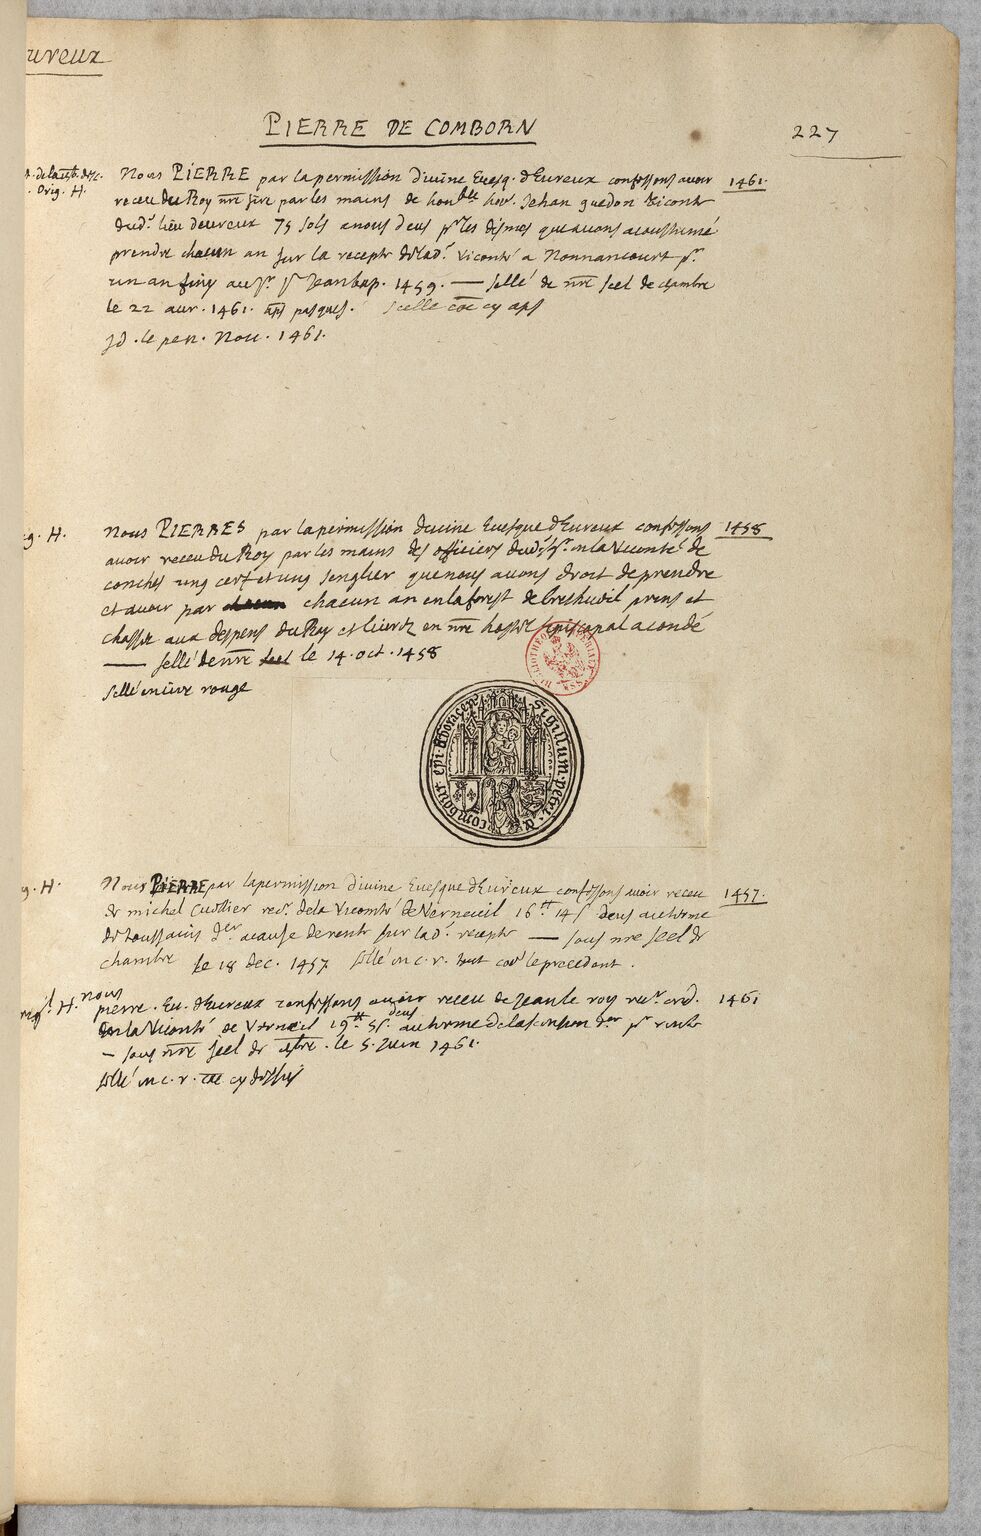 ureux
PIERRE DE COMBORN
227
Orig. H.
Nous PIERRE par la permission divine Evesq. d'Evreux confessons avoir 1461.
receu du Roy nre sire par les mains de honble hoe. Jehan guedon Viconte
dud. lieu deureux 75 sols a nous deus pr les dismes que avons acoustumé
prendre chacun an sur la recepte de lad. viconté a Nonnancourt pr.
un an finy au jr. s Jeanbap. 1459. — sellé de nre scel de chambre
le 22 aur. 1461. aps pasques. scelle coe cy aps
Id. le pen. Nou. 1461.
g. H.
Nous PIERRES par la permission divine Evesque d'Evreux confessons 1458
avoir receu du Roy par les mains des officiers dud. sr. en la Viconté de
conches ung cerf et ung senglier que nous avons droit de prendre
et avoir par chacun an en la forest de bretheuil prens et
chasse aux despens du Roy et lieure en nre hostel Episcopal a condé
— sellé de nre le 14. oct. 1458
sellé en cire rouge
sigillum petri
g. H.
Nous PIERRE par la permission divine Evesque d'Evreux confessons avoir receu 1457.
de michel Cuvillier rec. de la Viconté de Verneuil 16tt 14s deus au terme
de toussains der. a cause de rente sur lad. recepte — sous nre seel de
chambre le 18 dec. 1457 sellé en c. r. tout coe le precedent.
H. nous
pierre. Ev. d'Evreux confessons avoir receu de Jean le roy rec. ord. 1461
en la Viconté de Verneuil 19tt 5s. deus au terme de lascension der pr rente
— sous nre seel de chre. le 5. Juin 1461.
sellé en c. r. coe cy dessus